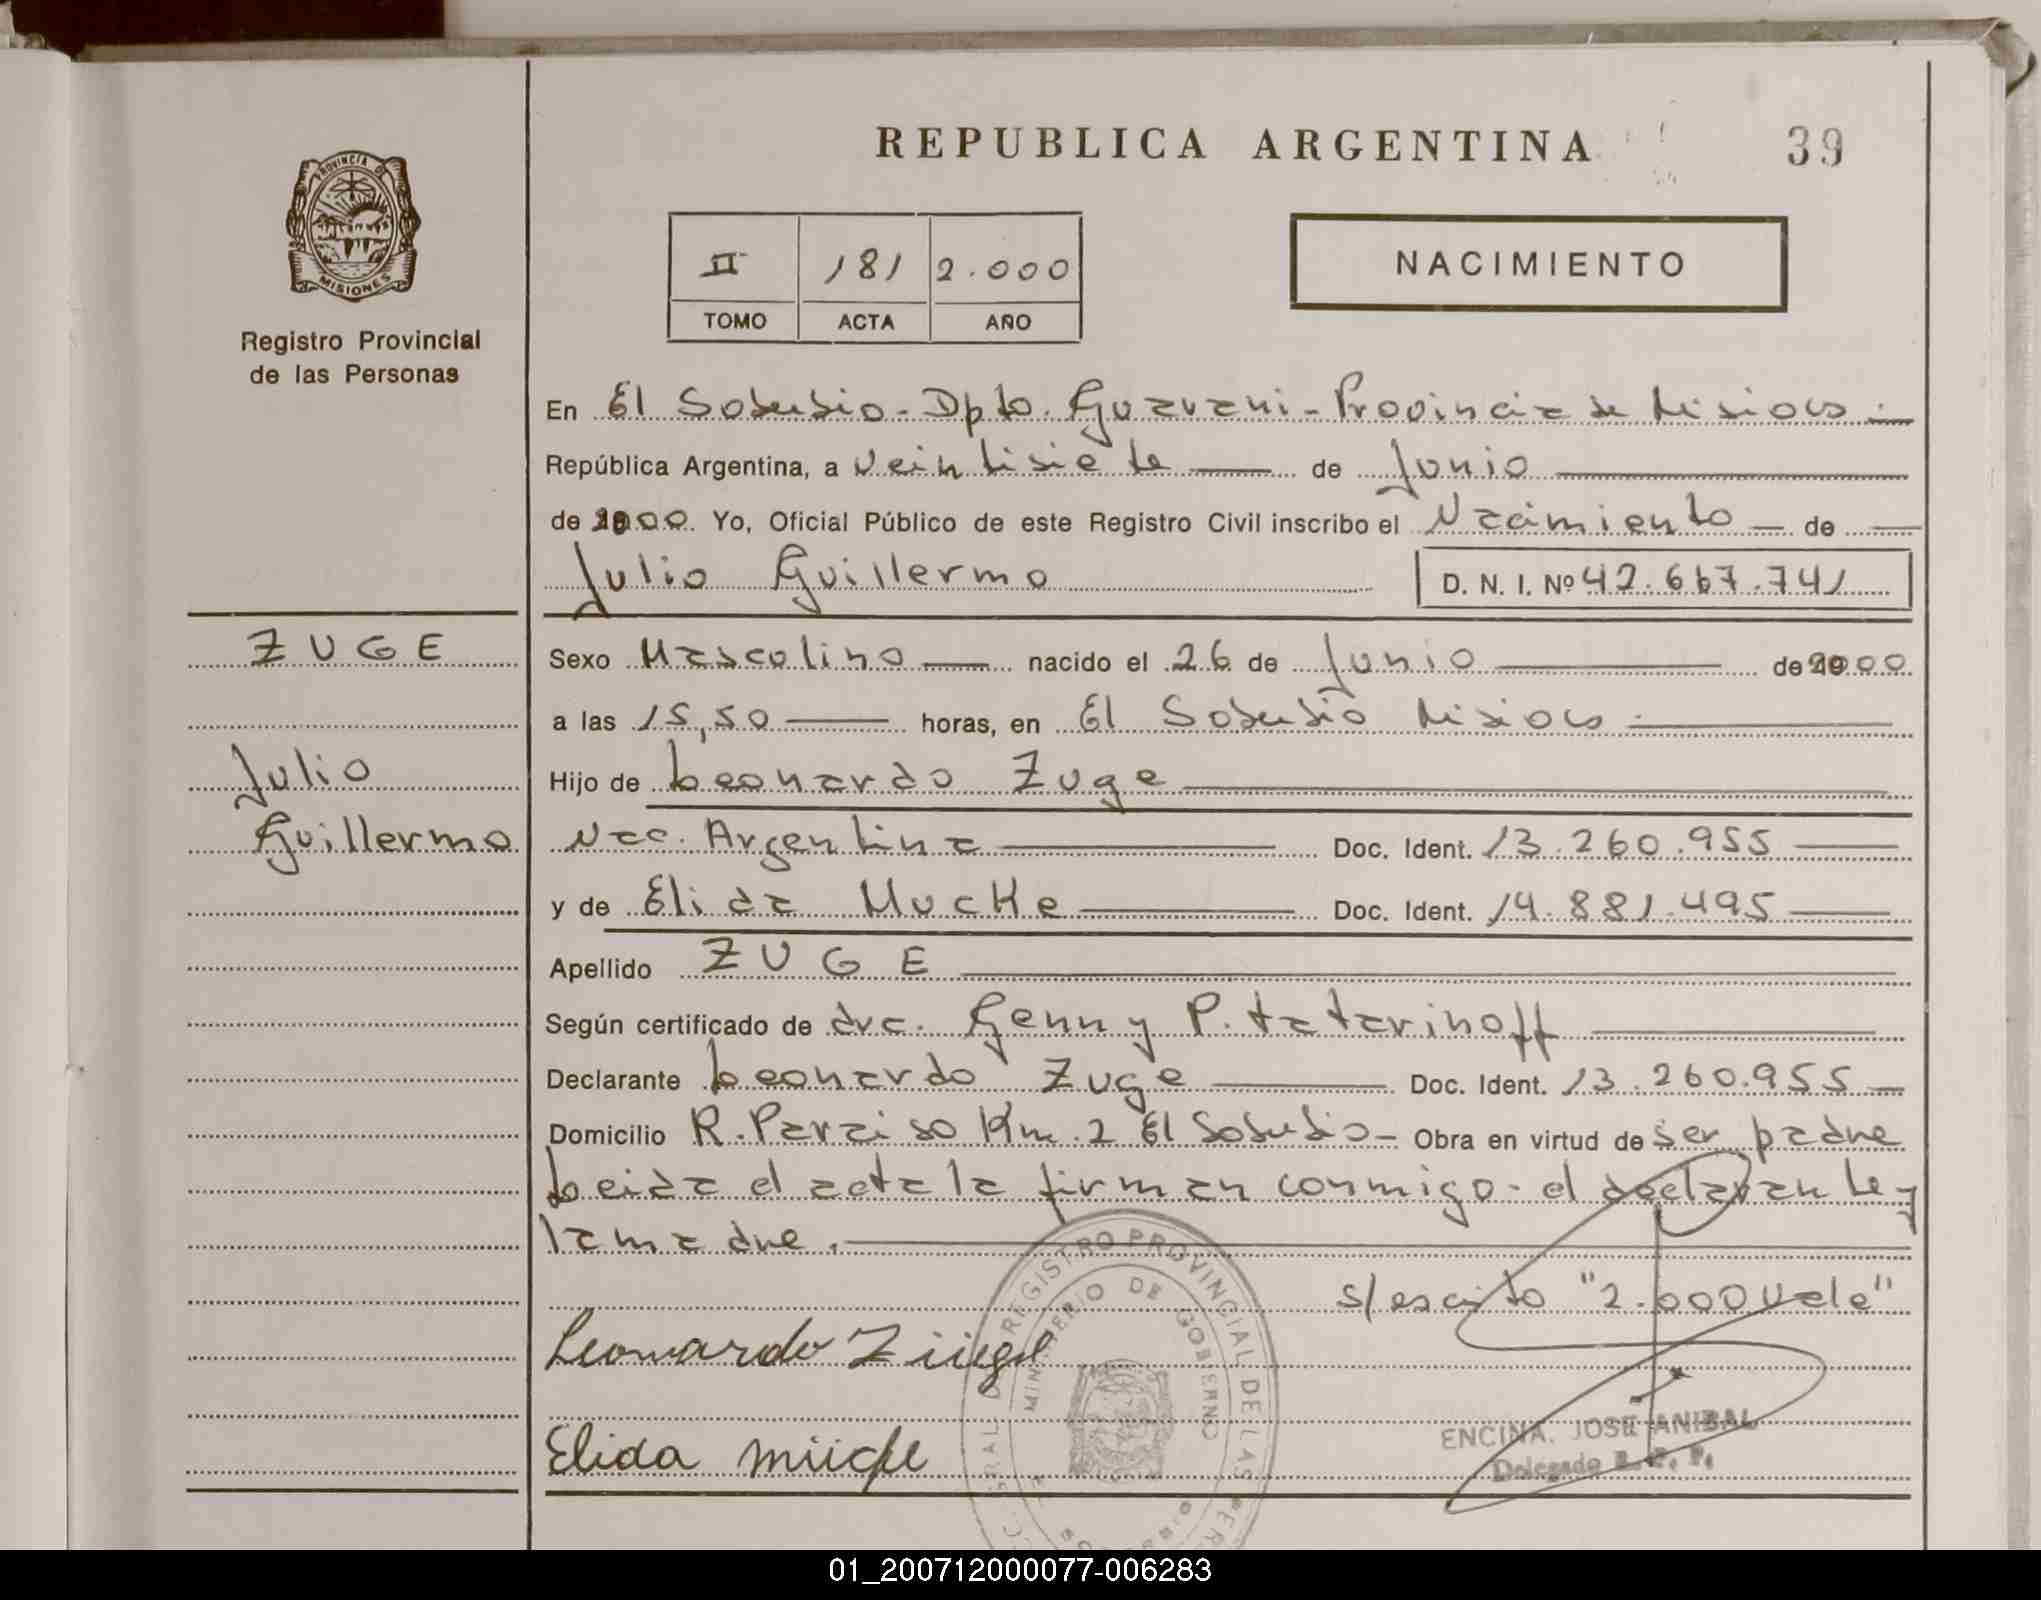 REPUBLICA ARGENTINA
39
PROVINCIA DE
MISIONES
Registro Provincial
de las Personas
II 181 2.000
TOMO ACTA AÑO
NACIMIENTO
En El Soberbio - Dpto. Guarani - Provincia de Misiones.
República Argentina, a veintisiete de Junio
de 2000. Yo, Oficial Público de este Registro Civil inscribo el Nacimiento de
Julio Guillermo
D. N. I. Nº 42.667.741
ZUGE
Julio
Guillermo
Sexo Masculino nacido el 26 de Junio de 2000
a las 15,50 horas, en El Soberbio Misiones.
Hijo de Leonardo Zuge
Nac. Argentina Doc. Ident. 13.260.955
y de Elida Mucke Doc. Ident. 14.881.495
Apellido ZUGE
Según certificado de dra. Genny P. tatarinoff
Declarante Leonardo Zuge Doc. Ident. 13.260.955
Domicilio R. Paraiso Km. 2 El Soberbio - Obra en virtud de ser padre
Leida el acta la firman conmigo - el declarante y
la madre.
s/escrito "2.000 vale"
Leonardo Züge
Elida Mücke
REGISTRO PROVINCIAL DE LAS
MINISTERIO DE GOBIERNO
ENCINA, JOSE ANIBAL
Delegado R. P. P.
01_200712000077-006283